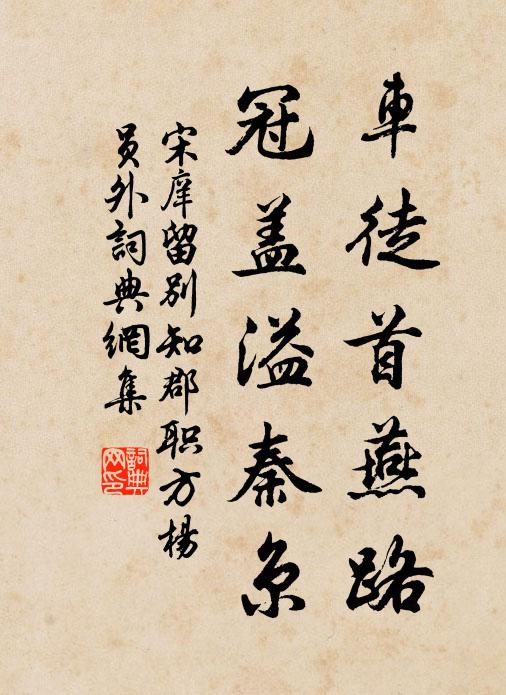 車徒首燕路
冠盖溢秦京
宋庠留别知郡职方楊
員外詞典網集
詞典网印